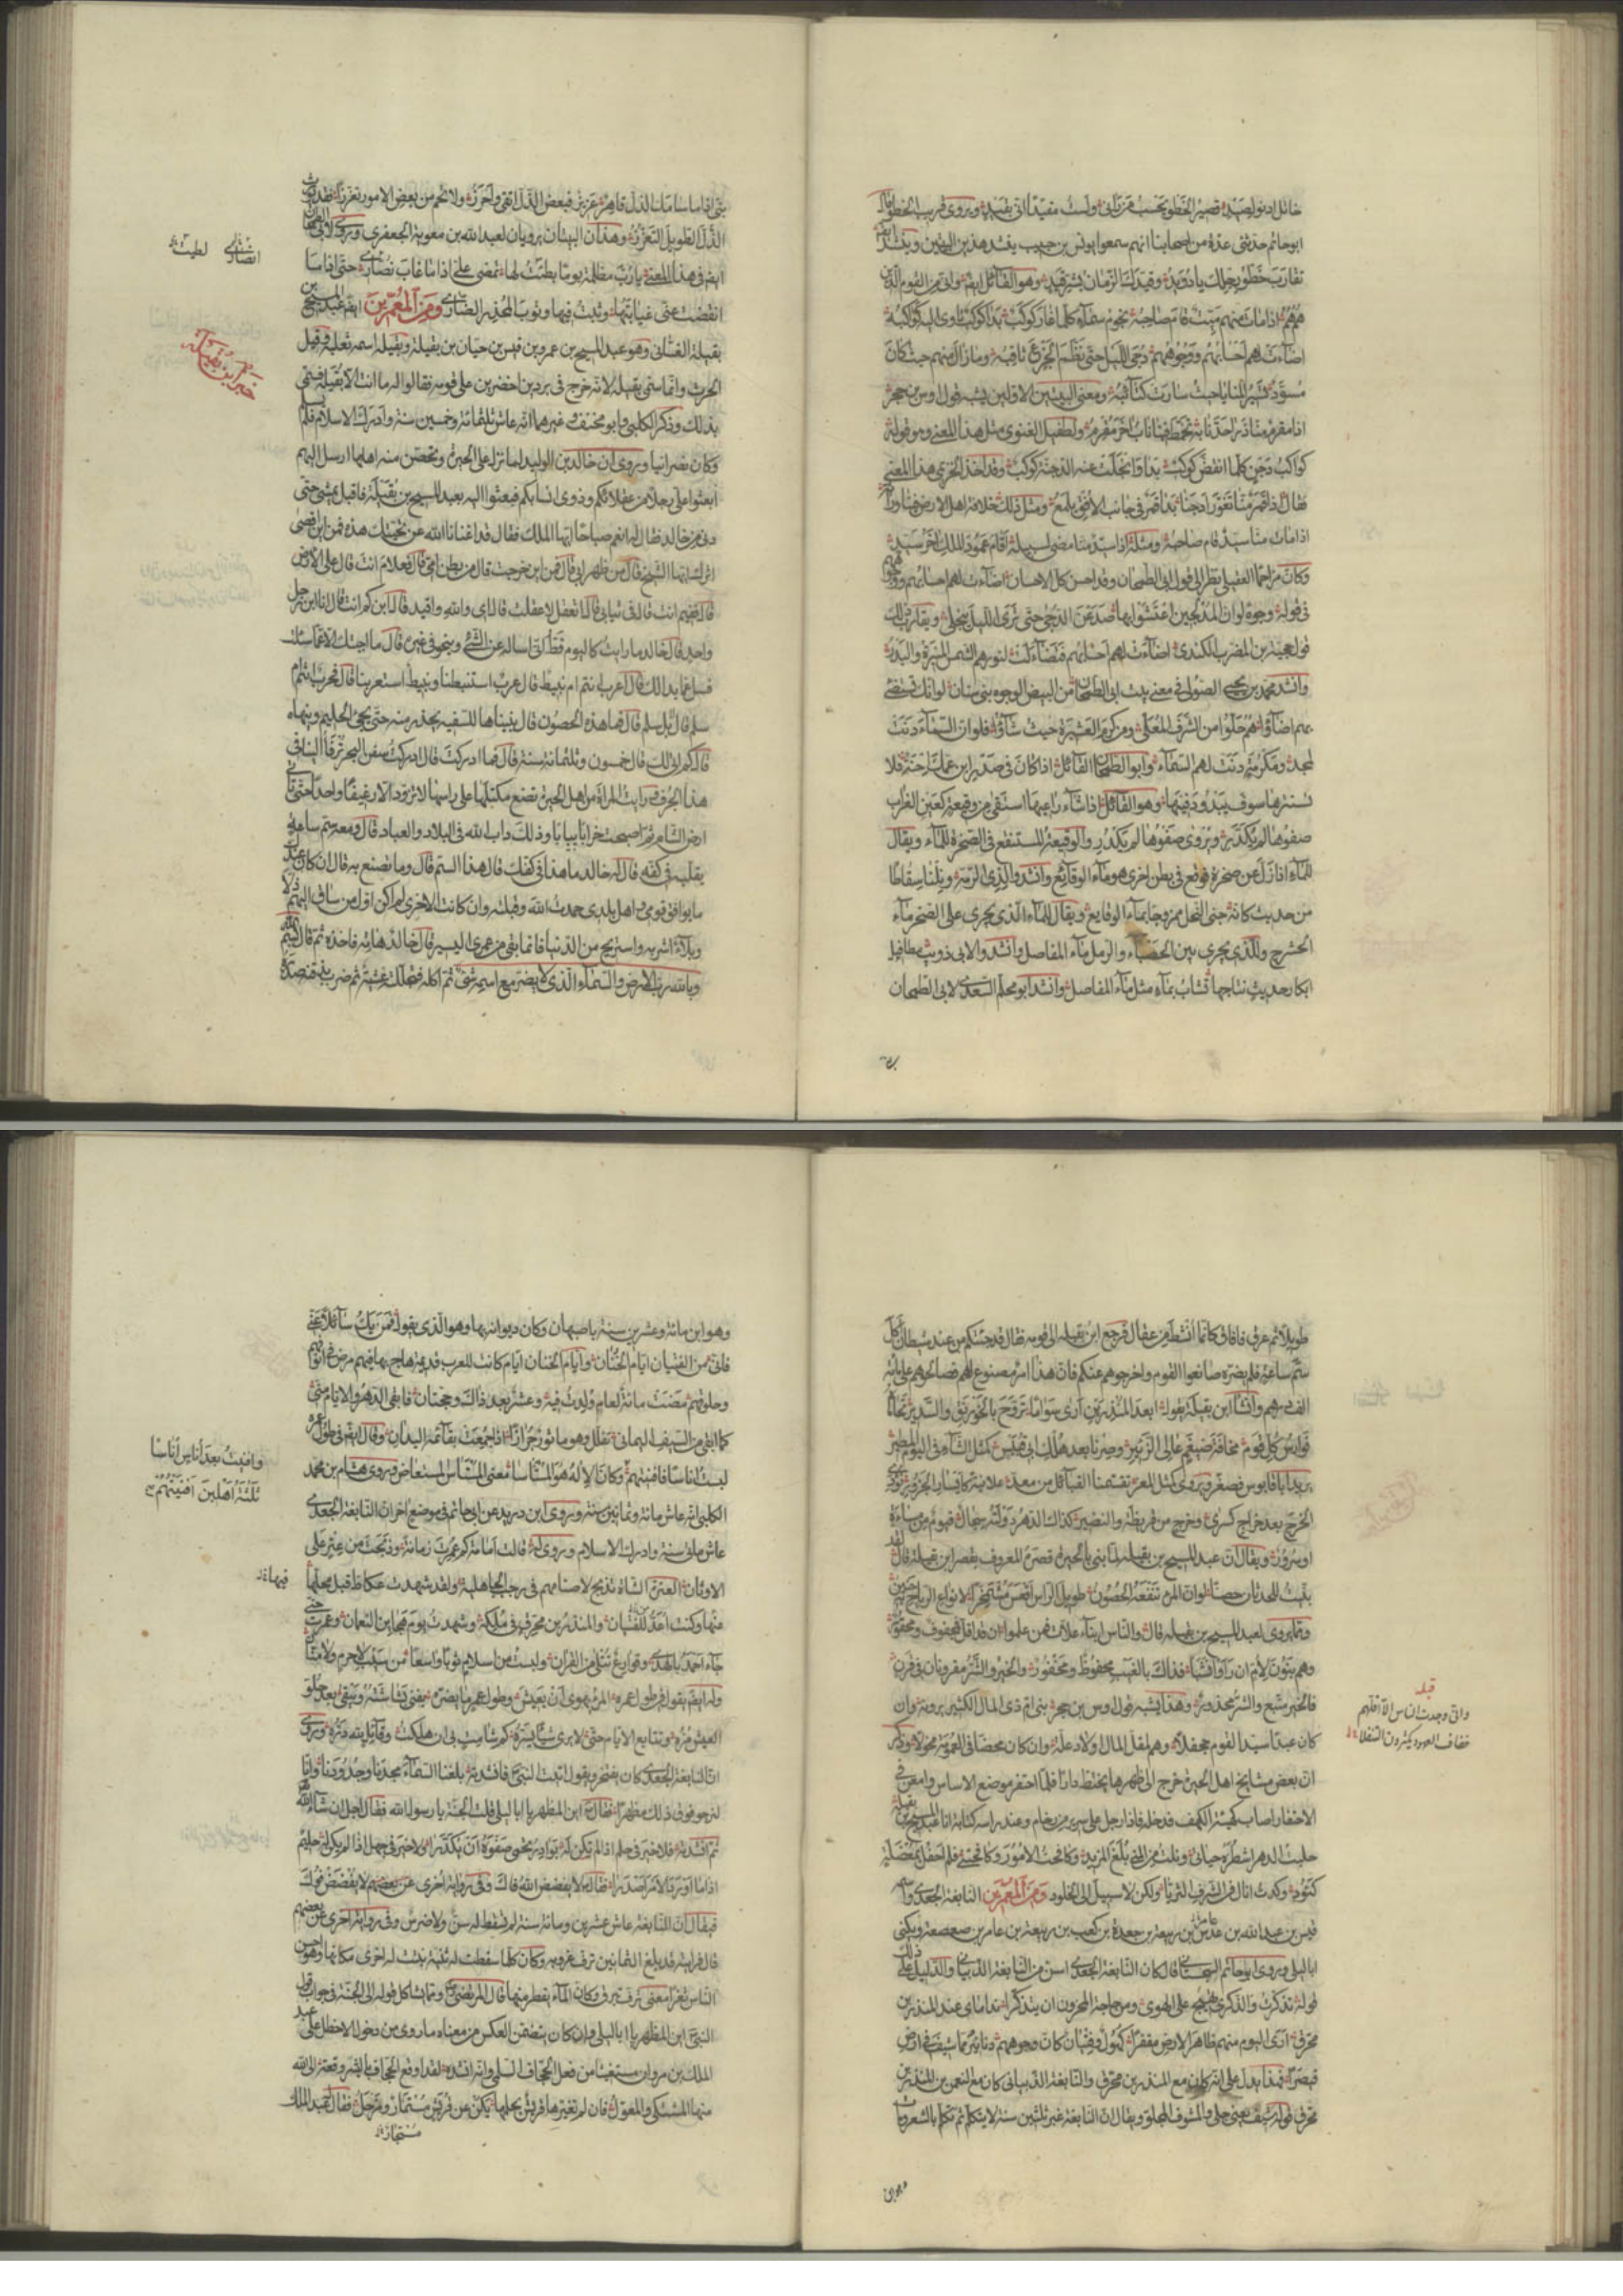 خاتل ادنو لصيد قصير الخطو يحسب من رآني ولست مقيدا اني بقيد ويروى قريب الخطو قال
ابو حاتم حدثني عدة من اصحابنا انهم سمعوا يونس بن حبيب ينشد هذين البيتين وينشد ايضا
تقارب خطو رجلك يا دويد وقيدك الزمان بشر قيد وهو القائل ايضا واني من القوم الذين
هم هم اذا مات منهم ميت قام صاحبه نجوم سماء كلما غار كوكب بدا كوكب تاوى اليه كواكبه
اضاءت لهم احسابهم ووجوههم دجى الليل حتى نظم الجزع ثاقبه وما زال منهم حيث كان
مسود تسير المنايا حيث سارت كتائبه ومعنى البيتين الاولين يشبه قول اوس بن حجر
اذا مقرم منا ذرا حد نابه تخمط فينا ناب آخر مقرم ولطفيل الغنوي مثل هذا المعنى وهو قوله
كواكب دجن كلما انقض كوكب بدا وانجلت عنه الدجنة كوكب وقد اخذ الخزيمي هذا المعنى
فقال اذا قمر منا تغور او خبا بدا قمر في جانب الافق يلمع ومثل ذلك خلافة اهل الارض فينا وراثة
اذا مات منا سيد قام صاحبه ومثله اذا سيد منا مضى لسبيله اقام عمود الملك آخر سيد
وكان مزاحما العقيلي نظر الى قول ابي الطمحان وقد احسن كل الاحسان اضاءت لهم احسابهم ووجوههم
في قوله وجوه لو ان المدلجين اعتشوا بها صدعن الدجى حتى ترى الليل ينجلي ويقارب ذلك
قول حجية بن المضرب الكندي اضاءت لهم احسابهم فتضاءلت لنورهم الشمس المنيرة والبدر
وانشد محمد بن يحيى الصولي في معنى بيت ابي الطمحان من البيض الوجوه بني سنان لو انك تستضيء
بهم اضاؤا هم حلوا من الشرف المعلى ومن كرم العشيرة حيث شاؤا فلو ان السماء دنت
لمجد ومكرمة دنت لهم السماء وابو الطمحان القائل اذا كان في صدر ابن عمك احنة فلا
تستثرها سوف يبدو دفينها وهو القائل اذا شاء راعيها استقى من وقيعة كعين الغراب
صفوها لم يكدر ويروى صفوها لم يكدر والوقيعة المستنقع في الصخرة للماء ويقال
للماء اذا زل عن صخرة فوقع في بطن اخرى هو ماء الوقائع وانشدوا لذي الرمة ونلنا سقاطا
من حديث كانه جنى النحل ممزوجا بماء الوقايع ويقال للماء الذي يجري على الصخر ماء
الحشرج وللذي يجري بين الحصباء والرمل ماء المفاصل وانشدوا لابي ذويب مطافيل
ابكار حديث نتاجها تشاب بماء مثل ماء المفاصل وانشد ابو محلم السعدي لابي الطمحان
بني اذا ما سامك الذل قاهر عزيز فبعض الذل اتقى واحرز ولا تحم من بعض الامور تعززا فقد يورث
الذل الطويل التعزز وهذان البيتان يرويان لعبد الله بن معوية الجعفري وروى لابي الطمحان
ايضا في هذا المعنى يا رب مظلمة يوما لطئت لها تمضي علي اذا ما غاب نصاري حتى اذا ما
انقضت عني غيابتها وثبت فيها وثوب المخدر الضاري ومن المعمرين ايضا عبد المسيح بن
بقيلة الغساني وهو عبد المسيح بن عمرو بن قيس بن حيان بن بقيلة وبقيلة اسمه ثعلبة وقيل
الحرث وانما سمي بقيلة لانه خرج في بردين اخضرين على قومه فقالوا له ما انت الا بقيلة فسمي
بذلك وذكر الكلبي وابو مخنف وغيرهما انه عاش ثلثمائة وخمسين سنة وادرك الاسلام فلم يسلم
وكان نصرانيا وروى ان خالد بن الوليد لما نزل على الحيرة وتحصن منه اهلها ارسل اليهم
ابعثوا الي رجلا من عقلائكم وذوي انسابكم فبعثوا اليه بعبد المسيح بن بقيلة فاقبل يمشي حتى
دنى من خالد فقال له انعم صباحا ايها الملك فقال قد اغنانا الله عن تحيتك هذه فمن اين اقصى
اثرك ايها الشيخ قال من ظهر ابي قال فمن اين خرجت قال من بطن امي قال فعلام انت قال على الارض
قال ففيم انت قال في ثيابي قال اتعقل لا عقلت قال اي والله واقيد قال ابن كم انت قال انا ابن رجل
واحد قال خالد ما رايت كاليوم قط اني اساله عن الشيء وينحو في غيره قال ما اجبتك الا عما سئلت
فسل عما بدا لك قال اعرب انتم ام نبيط قال عرب استنبطنا ونبيط استعربنا قال فحرب انتم ام
سلم قال بل سلم قال فما هذه الحصون قال بنيناها للسفيه نحذر منه حتى يجيء الحليم وينهاه
قال كم اتى لك قال خمسون وثلثمائة سنة قال فما ادركت قال ادركت سفن البحر ترفا الينا في
هذا الجرف ورايت المراة من اهل الحيرة تضع مكتلها على راسها لا تزود الا رغيفا واحدا حتى تاتي
ارض الشام ثم اصبحت خرابا يبابا وذلك داب الله في البلاد والعباد قال ومعه سم ساعة
يقلبه في كفه فقال له خالد ما هذا في كفك قال هذا السم قال وما تصنع به قال ان كان عندك
ما يوافق قومي واهل بلدي حمدت الله وقبلته وان كانت الاخرى لم اكن اول من ساق اليهم ذلا
وبلاء اشربه واستريح من الدنيا فانما بقي من عمري اليسير قال خالد هاته فاخذه ثم قال بسم الله
وبالله رب الارض والسماء الذي لا يضر مع اسمه شيء ثم اكله فتجللته غشية ثم ضرب بذقنه صدره
انصاري لطيت
خبر ابن بقيلة
طويلا ثم عرق فافاق كانما انشط من عقال فرجع ابن بقيلة الى قومه فقال قد جئتكم من عند شيطان اكل
سم ساعة فلم يضره صانعوا القوم واخرجوهم عنكم فان هذا امر مصنوع لهم فصالحوهم على مائة
الف درهم وانشا ابن بقيلة يقول ابعد المنذرين ارى سواما تروح بالخورنق والسدير تحاماه
فوارس كل قوم مخافة ضيغم عالي الزئير وصرنا بعد هلك ابي قبيس كمثل الشاء في اليوم المطير
يريد ابا قابوس فصغر ويروى كمثل المعز تقسمنا القبائل من معد علانية كايسار الجزور نؤدي
الخرج بعد خراج كسرى وخرج من قريظة والنضير كذاك الدهر دولته سجال فيوم من مساءة
او سرور ويقال ان عبد المسيح بن بقيلة لما بنى بالحيرة قصره المعروف بقصر ابن بقيلة قال لقد
بنيت للحدثان حصنا لو ان المرء تنفعه الحصون طويل الراس اقعس مشمخرا لانواع الرياح به حنين
ومما يروى لعبد المسيح بن بقيلة قال والناس ابناء علات فمن علموا ان قد اقل فمجفو ومحقور
وهم بنون لام ان راوا نشبا فذاك بالغيب محفوظ ومخفور والخير والشر مقرونان في قرن
فالخير متبع والشر محذور وهذا يشبه قول اوس بن حجر بني ام ذي المال الكثير يرونه وان
كان عبدا سيد القوم جحفلا وهم لمقل المال اولاد علة وان كان محضا في العمومة مخولا وذكر
ان بعض مشايخ اهل الحيرة خرج الى ظهرها يختط دارا فلما احتفر موضع الاساس وامعن في
الاحتفار اصاب كهيئة الكهف فدخله فاذا رجل على سرير من رخام وعند راسه كتابة انا عبد المسيح بن بقيلة
حلبت الدهر اشطره حياتي ونلت من المنى بلغ المزيد وكافحت الامور وكافحتني فلم احفل بمعضلة
كؤود وكدت انال في الشرف الثريا ولكن لا سبيل الى الخلود ومن المعمرين النابغة الجعدي واسمه
قيس بن عبد الله بن عدس بن ربيعة بن جعدة بن كعب بن ربيعة بن عامر بن صعصعة ويكنى
ابا ليلى وروى ابو حاتم السجستاني قال كان النابغة الجعدي اسن من النابغة الذبياني والدليل على ذلك
قوله تذكرت والذكرى تهيج على الهوى ومن حاجة المحزون ان يتذكرا نداماي عند المنذر بن
محرق ارى اليوم منهم ظاهر الارض مقفرا كهول وفتيان كان وجوههم دنانير مما شيف في ارض
قيصرا فهذا يدل على انه كان مع المنذر بن محرق والنابغة الذبياني كان مع النعمن بن المنذر بن
محرق قوله شيف يعني جلي والمشوف المجلو ويقال ان النابغة غبر ثلثين سنة لا يتكلم ثم تكلم بالشعر ومات
قبله
واني وجدت الناس الا اقلهم
خفاف العهود يكثرون التنقلا
وهو ابن
وهو ابن مائة وعشرين سنة باصبهان وكان ديوانه بها وهو الذي يقول فمن يك سائلا عني
فاني من الفتيان ايام الخنان وايام الخنان ايام كانت للعرب قديمة هاج بها فيهم مرض في انوفهم
وحلوقهم مضت مائة لعام ولدت فيه وعشر بعد ذاك وحجتان فابقى الدهر والايام مني
كما ابقى من السيف اليماني تفلل وهو ماثور جراز اذا جمعت بقائمه اليدان وقال ايضا في طول عمره
لبست اناسا فافنيتهم وكان الاله هو المستاسا معنى المستاس المستعاض وروى هشام بن محمد
الكلبي انه عاش مائة وثمانين سنة وروى ابن دريد عن ابي حاتم في موضع آخر ان النابغة الجعدي
عاش مائتي سنة وادرك الاسلام وروى له قالت امامة كم عمرت زمانة وذبحت من عتر على
الاوثان العتيرة الشاة تذبح لاصنامهم في رجب الجاهلية ولقد شهدت عكاظ قبل محلها
عنها وكنت اعد للفتيان والمنذر بن محرق في ملكه وشهدت يوم هجائن النعمان وعمرت حتى
جاء احمد بالهدى وقوارع تتلى من القرآن ولبست من الاسلام ثوبا واسعا من سيب لا حرم ولا منان
وله ايضا يقول في طول عمره المرء يهوى ان يعيش وطول عمر ما يضره تفنى بشاشته ويبقى بعد حلو
العيش مره وتتابع الايام حتى لا يرى شيئا يسره كم شامت بي ان هلكت وقائل لله دره ويروى
ان النابغة الجعدي كان يفتخر ويقول اتيت النبي فانشدته بلغنا السماء مجدنا وجدودنا وانا
لنرجو فوق ذلك مظهرا فقال اين المظهر يا ابا ليلى قلت الجنة يا رسول الله فقال اجل ان شاء الله
ثم انشدته فلا خير في حلم اذا لم تكن له بوادر تحمي صفوه ان يكدرا ولا خير في جهل اذا لم يكن له حليم
اذا ما اورد الامر اصدرا فقال لا يفضض الله فاك وفي رواية اخرى عن بعضهم لا يفضض فوك
فيقال ان النابغة عاش عشرين ومائة سنة لم تسقط له سن ولا ضرس وفي رواية اخرى عن بعضهم
قال فرايته قد بلغ الثمانين ترف غروبه وكان كلما سقطت له ثنية نبتت له اخرى مكانها وهو من احسن
الناس ثغرا معنى ترف تبرق وكان الماء يقطر منها قال المرتضى ومما يشاكل قوله الى الجنة في جواب قول
النبي اين المظهر يا ابا ليلى وان كان يتضمن العكس من معناه ما روى من دخول الاخطل على عبد
الملك بن مروان مستغيثا من فعل الجحاف السلمي وانه انشده لقد اوقع الجحاف بالبشر وقعة الى الله
منها المشتكى والمعول فان لم تغيرها قريش بحلمها يكن عن قريش مستماز ومزحل فقال عبد الملك
مستجاز
وافنيت بعد اناس اناسا
ثلثة اهلين افنيتهم
فيها